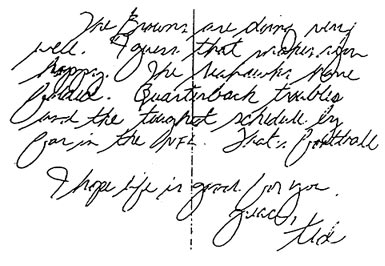 The Browns are doing very
well. I guess that makes you
happy. The Seahawks have
folded. Quarterback troubles
and the toughest schedule by
far in the NFL. That's football
I hope life is good for you.
Peace,
Ted